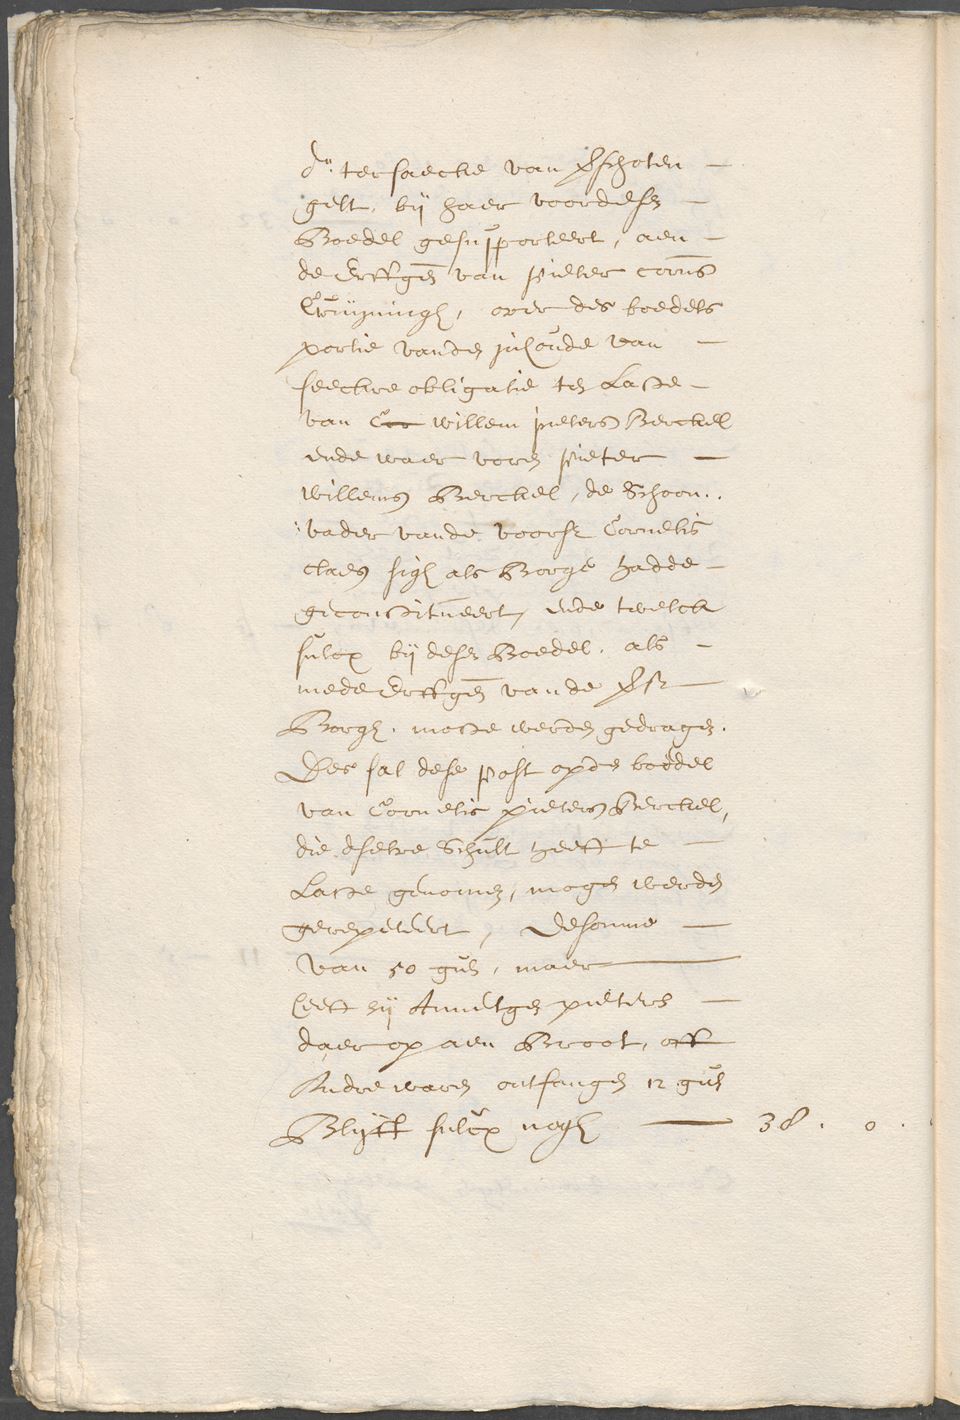 dn. ter saecke van verschoten —
gelt, bij haer voor desen —
Boedel gesupporteert, aen —
de Erffgen van Pieter corns
Cruijningh, over des boedels
portie vanden inhoude van —
seeckre obligatie ten Laste —
van Cor willem pieters Berckel
ende waer voren Pieter —
willems Berckel, de Schoon..
vader vande voorsz Cornelis
claes sigh als Borge hadde —
geconstitueert, ende twelck
sulcx bij desen Boedel, als —
mede Erffgen vande vsz —
Borgh, moste werden gedragen.
Des sal dese post op de boedel
van Cornelis pieters Berckel,
die dselve Schult heeft te —
Laste genomen, mogen werden
gerepeteert, de somme —
van 50 guls, maer —
heeft hij Annetgen pieters —
daer op aen Broot, off
Andre waren ontfangen 12 guls
Blijft sulcx nogh — 38 . 0 .